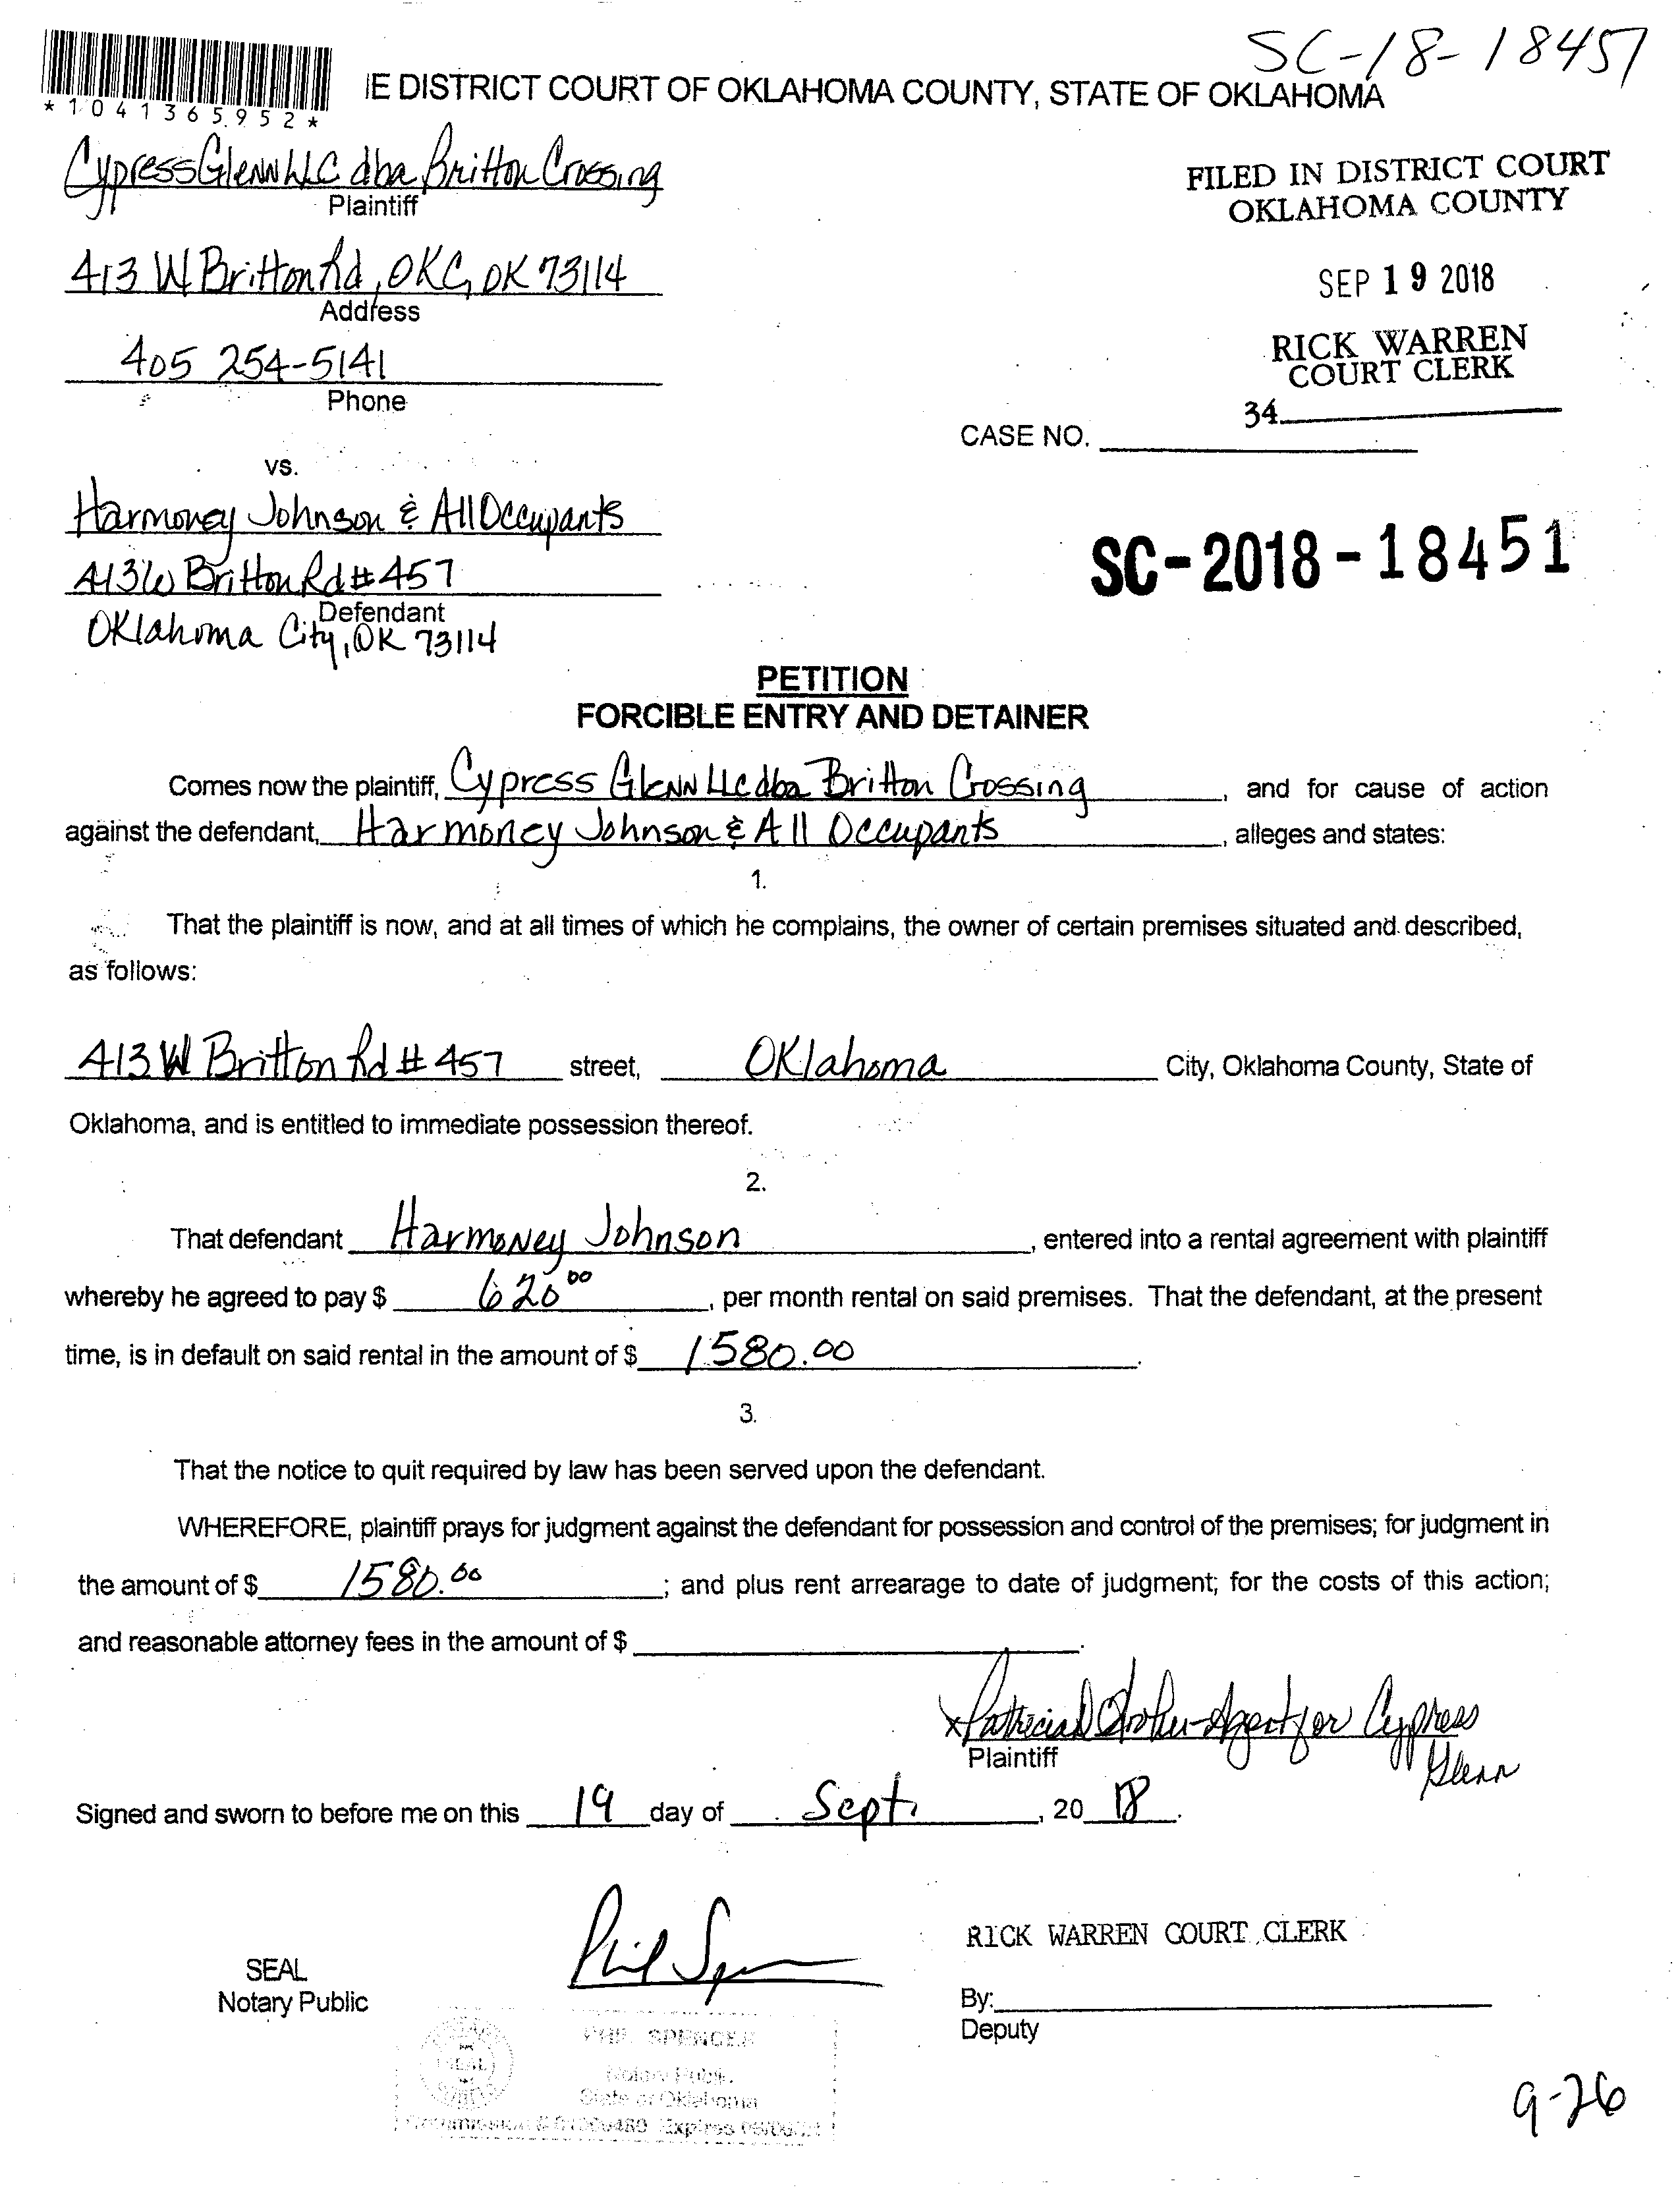 SC-18-18451
IE DISTRICT COURT OF OKLAHOMA COUNTY, STATE OF OKLAHOMA
*1041365952*
Cypress Glenn LLC dba Britton Crossing
Plaintiff
FILED IN DISTRICT COURT
OKLAHOMA COUNTY
413 W Britton Rd, OKC, OK 73114
Address
SEP 19 2018
405 254-5141
Phone
RICK WARREN
COURT CLERK
34
CASE NO.
vs.
Harmoney Johnson & All Occupants
413 W Britton Rd # 457
Defendant
Oklahoma City, OK 73114
SC-2018-18451
PETITION
FORCIBLE ENTRY AND DETAINER
Comes now the plaintiff, Cypress Glenn LLC dba Britton Crossing, and for cause of action
against the defendant, Harmoney Johnson & All Occupants, alleges and states:
1.
That the plaintiff is now, and at all times of which he complains, the owner of certain premises situated and described,
as follows:
413 W Britton Rd # 457 street, Oklahoma City, Oklahoma County, State of
Oklahoma, and is entitled to immediate possession thereof.
2.
That defendant Harmoney Johnson, entered into a rental agreement with plaintiff
whereby he agreed to pay $ 620 00, per month rental on said premises. That the defendant, at the present
time, is in default on said rental in the amount of $ 1580.00.
3.
That the notice to quit required by law has been served upon the defendant.
WHEREFORE, plaintiff prays for judgment against the defendant for possession and control of the premises; for judgment in
the amount of $ 1580.00; and plus rent arrearage to date of judgment; for the costs of this action;
and reasonable attorney fees in the amount of $ .
x Patricia - Agent for Cypress
Glenn
Plaintiff
Signed and sworn to before me on this 19 day of Sept., 20 18.
Phil Spencer
RICK WARREN COURT CLERK
SEAL
Notary Public
By:
Deputy
PHIL SPENCER
SEAL
Notary Public
State of Oklahoma
Commission # Expires
9-26